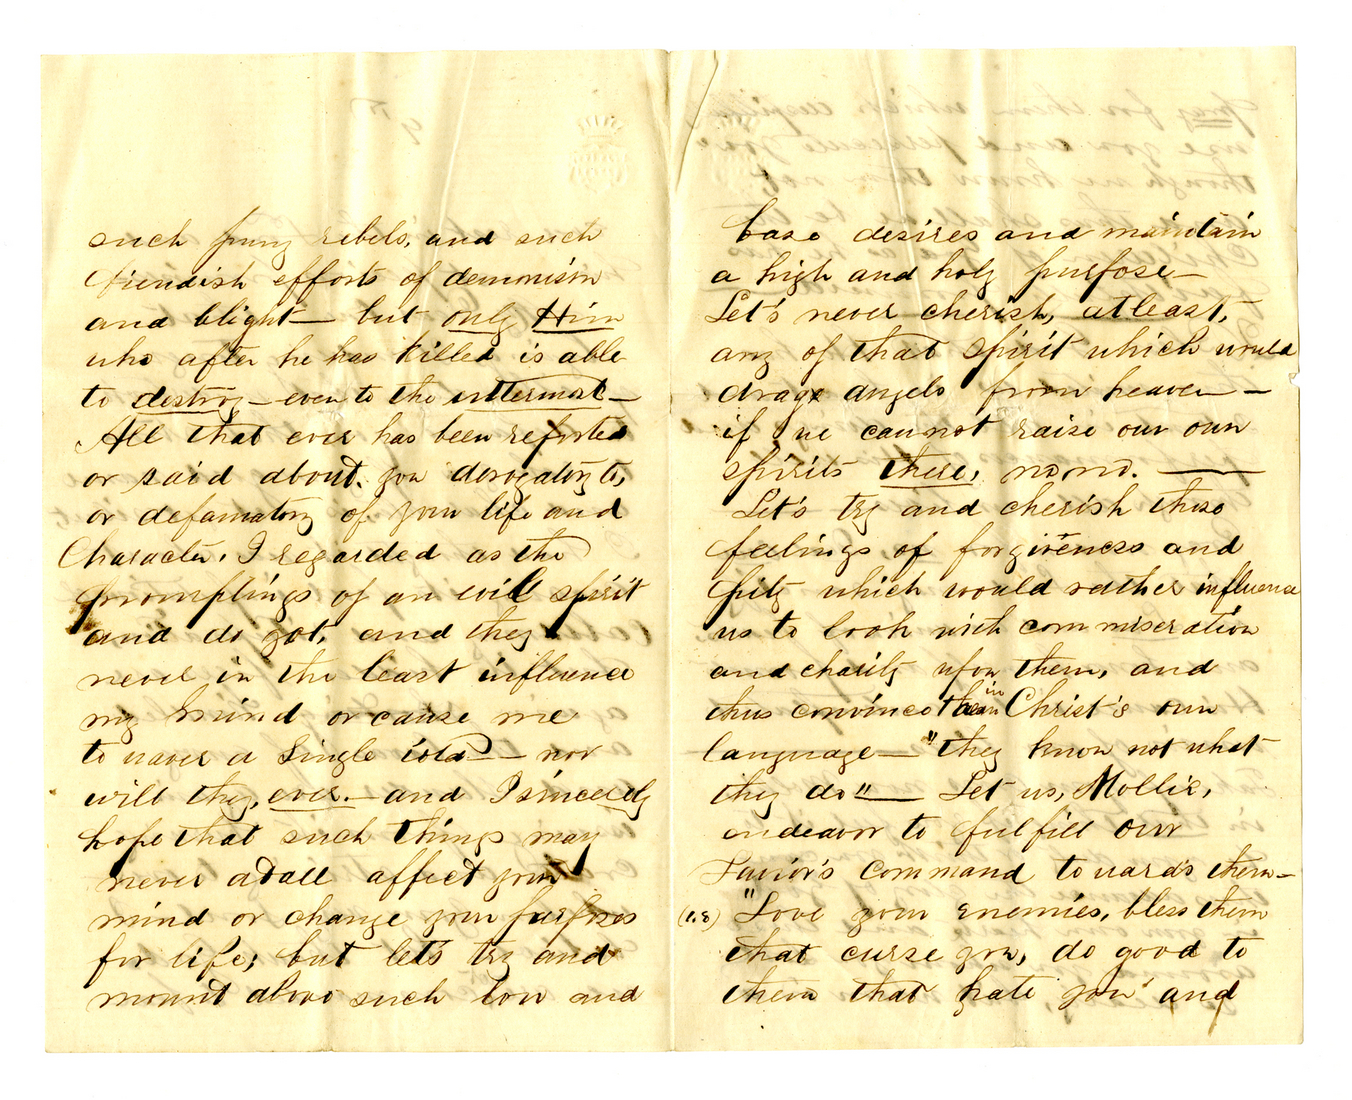 such puny rebels, and such
fiendish efforts of demonism
and blight — but only Him
who after he has killed is able
to destroy — even to the uttermost —
All that ever has been reported
or said about you derogatory to,
or defamatory of your life and
Character, I regarded as the
promptings of an evil spirit
and do yet, and they
never in the least influence
my mind or cause me
to waver a single iota — nor
will they, ever. — and I sincerely
hope that such things may
never atall affect your
mind or change your purposes
for life; but let's try and
mount above such low and
base desires and maintain
a high and holy purpose —
Let's never cherish, atleast,
any of that spirit which would
drag angels from heaven —
if we cannot raise our own
spirits there, no no. —
Let's try and cherish those
feelings of forgiveness and
pity which would rather influence
us to look with commiseration
and charity upon them, and
thus convince them in Christ's own
language — "they know not what
they do" — Let us, Mollie,
endeavor to fulfill our
Savior's command towards them —
"Love your enemies, bless them
that curse you, do good to
them that hate you" and